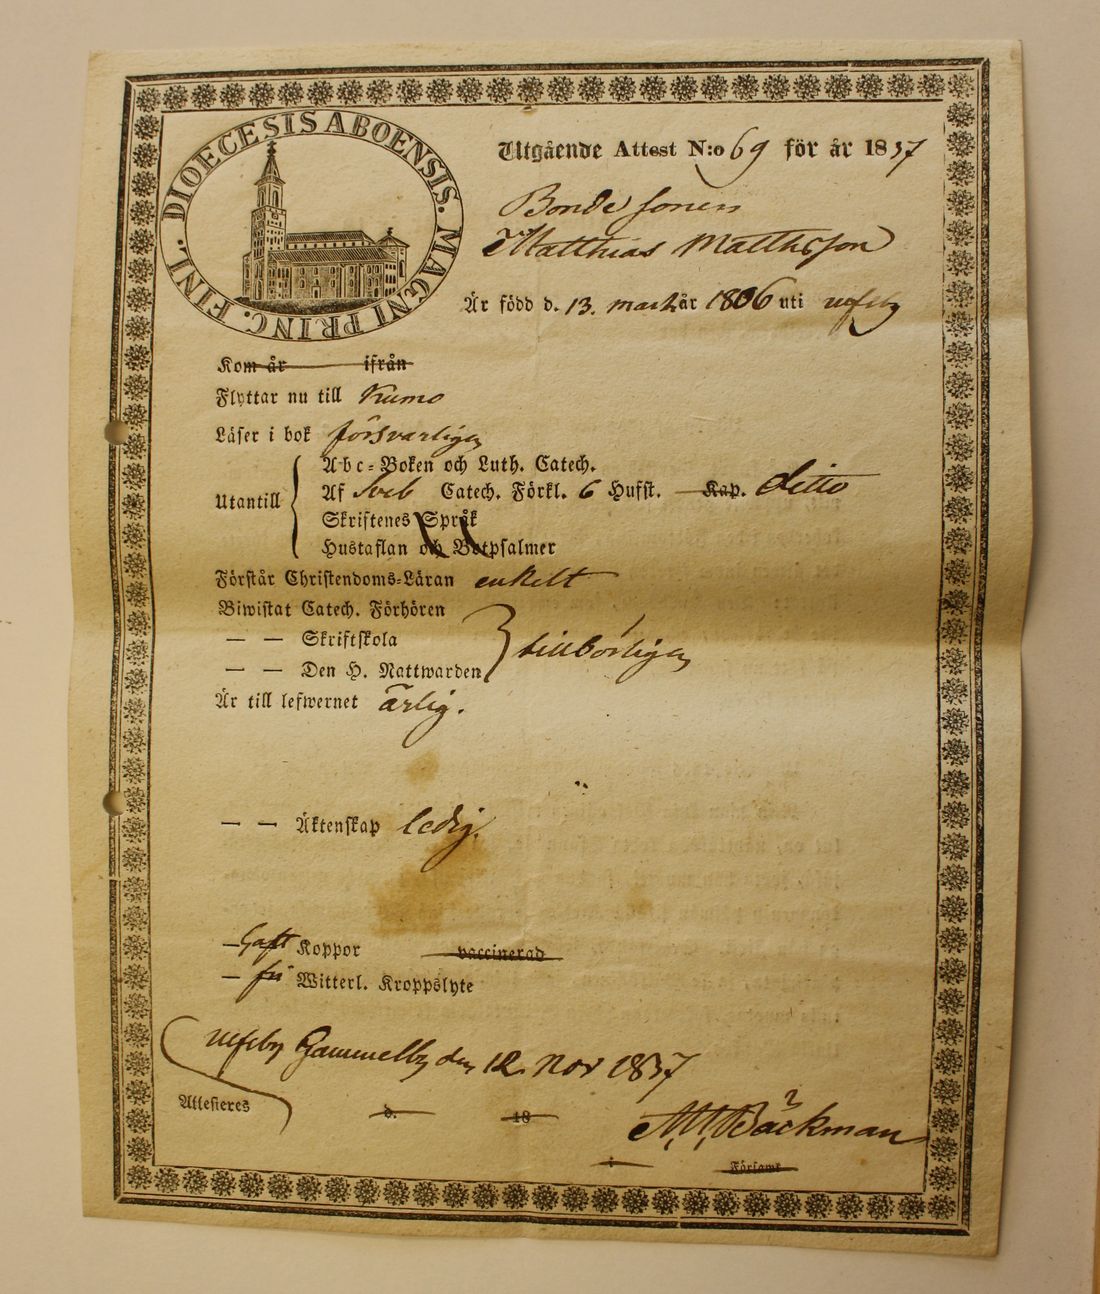 DIOECESIS ABOENSIS. MAGNI PRINC. FINL.
Utgående Attest N:o 69 för år 1837
Bonde sonen
Matthias Matthsson
Är född d. 13. mart. år 1806 uti
Kom år ifrån
Flyttar nu till Kumo
Läser i bok försvarligen
Utantill
Abc-Boken och Luth. Catech.
Af Sveb Catech. Förkl. 6 Hufst. Kap. ditto
Skriftenes Språk
Hustaflan och Botpsalmer
Förstår Christendoms-Läran enkelt
Biwistat Catech. Förhören
— — Skriftskola
— — Den H. Nattwarden
tillbörligen
Är till lefwernet ärlig.
— — Äktenskap ledig.
— haft Koppor vaccinerad
— fri Witterl. Kroppslyte
Gammelby den 12 Nov 1837
Attesteres d. 18
Bäckman
Församl.